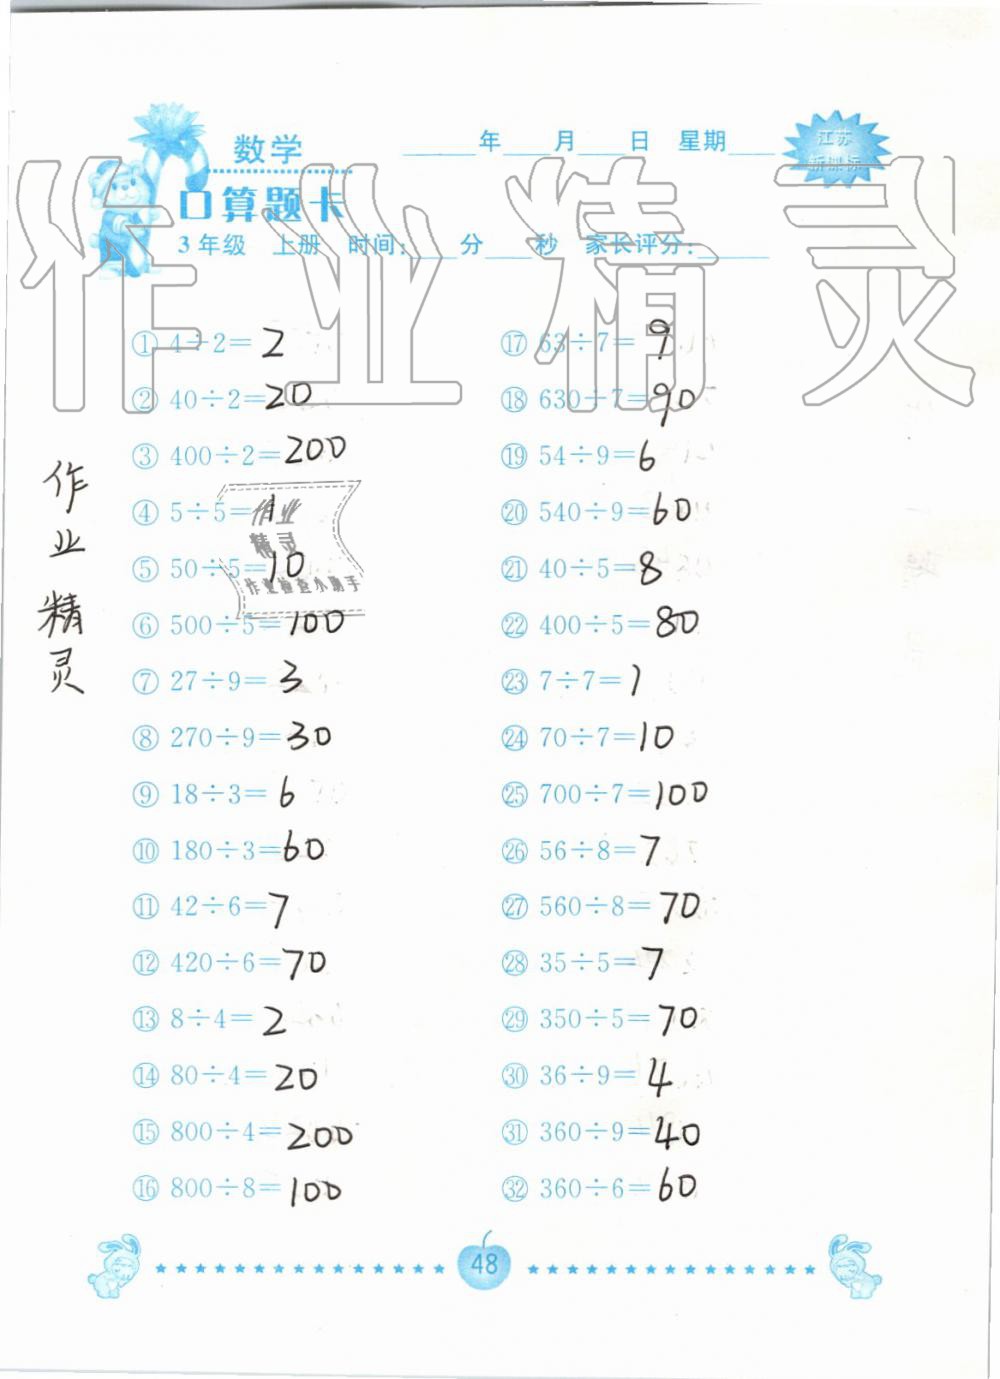 数学
____年____月____日 星期____
江苏
新课标
口算题卡
3年级 上册 时间:____分____秒 家长评分:____
作业精灵
① 4÷2=2
② 40÷2=20
③ 400÷2=200
④ 5÷5=1
⑤ 50÷5=10
⑥ 500÷5=100
⑦ 27÷9=3
⑧ 270÷9=30
⑨ 18÷3=6
⑩ 180÷3=60
⑪ 42÷6=7
⑫ 420÷6=70
⑬ 8÷4=2
⑭ 80÷4=20
⑮ 800÷4=200
⑯ 800÷8=100
⑰ 63÷7=9
⑱ 630÷7=90
⑲ 54÷9=6
⑳ 540÷9=60
㉑ 40÷5=8
㉒ 400÷5=80
㉓ 7÷7=1
㉔ 70÷7=10
㉕ 700÷7=100
㉖ 56÷8=7
㉗ 560÷8=70
㉘ 35÷5=7
㉙ 350÷5=70
㉚ 36÷9=4
㉛ 360÷9=40
㉜ 360÷6=60
作业精灵
作业
精灵
作业检查小助手
48